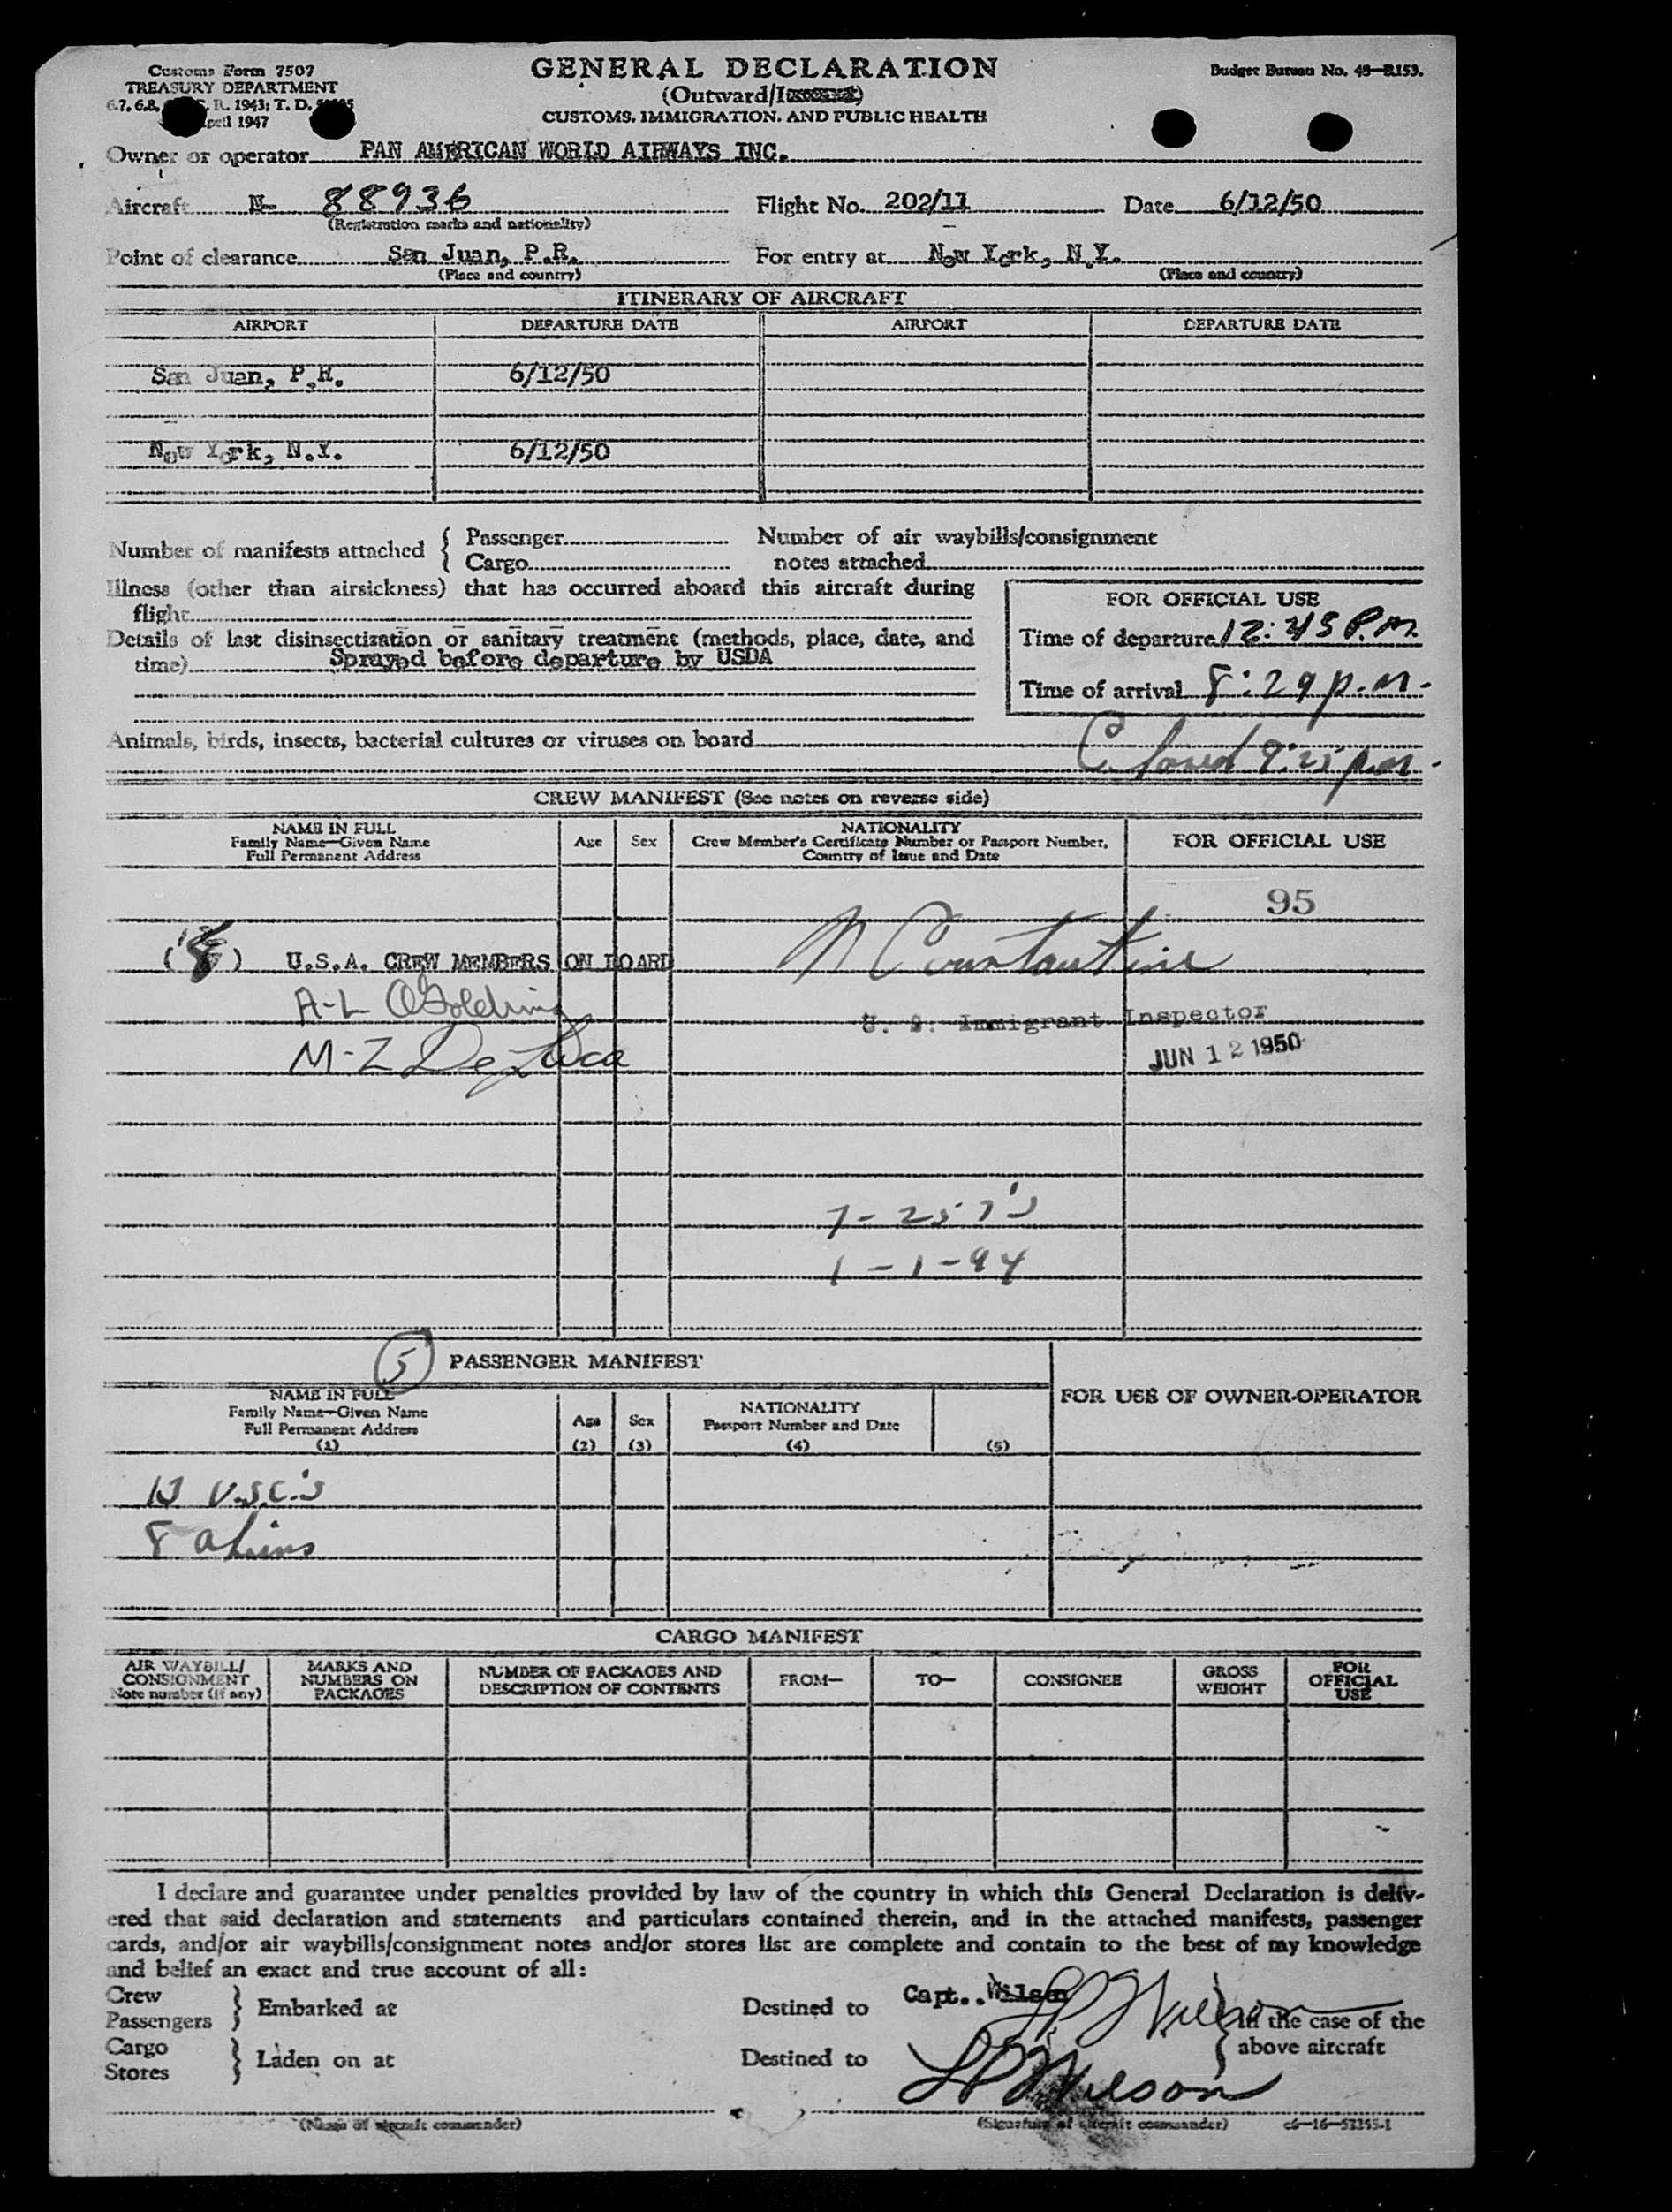 Customs Form 7507
TREASURY DEPARTMENT
6.7, 6.8, R. 1943; T. D.
April 1947
GENERAL DECLARATION
(Outward/
CUSTOMS, IMMIGRATION, AND PUBLIC HEALTH
Budget Bureau No. 48—R153.
Owner or operator PAN AMERICAN WORLD AIRWAYS INC.
Aircraft N- 88936 Flight No. 202/11 Date 6/12/50
(Registration marks and nationality)
Point of clearance San Juan, P.R. For entry at New York, N.Y.
(Place and country) (Place and country)
ITINERARY OF AIRCRAFT
AIRPORT DEPARTURE DATE AIRPORT DEPARTURE DATE
San Juan, P.R. 6/12/50
New York, N.Y. 6/12/50
Number of manifests attached { Passenger Number of air waybills/consignment
Cargo notes attached
Illness (other than airsickness) that has occurred aboard this aircraft during
flight
Details of last disinsectization or sanitary treatment (methods, place, date, and
time) Sprayed before departure by USDA
FOR OFFICIAL USE
Time of departure 12:45 P.M.
Time of arrival 8:29 p.m.
Animals, birds, insects, bacterial cultures or viruses on board
9:25 p.m.
CREW MANIFEST (See notes on reverse side)
NAME IN FULL
Family Name—Given Name
Full Permanent Address
Age Sex
NATIONALITY
Crew Member's Certificate Number or Passport Number,
Country of Issue and Date
FOR OFFICIAL USE
95
(8) U.S.A. CREW MEMBERS ON BOARD
A-L
M-Z DeLuca
U. S. Immigrant Inspector
JUN 12 1950
1-1-94
5 PASSENGER MANIFEST
NAME IN FULL
Family Name—Given Name
Full Permanent Address
(1)
Age
(2)
Sex
(3)
NATIONALITY
Passport Number and Date
(4)
(5)
FOR USE OF OWNER-OPERATOR
13 U.S.C.'s
8 aliens
CARGO MANIFEST
AIR WAYBILL/
CONSIGNMENT
Note number (if any)
MARKS AND
NUMBERS ON
PACKAGES
NUMBER OF PACKAGES AND
DESCRIPTION OF CONTENTS
FROM—
TO—
CONSIGNEE
GROSS
WEIGHT
FOR
OFFICIAL
USE
I declare and guarantee under penalties provided by law of the country in which this General Declaration is deliv-
ered that said declaration and statements and particulars contained therein, and in the attached manifests, passenger
cards, and/or air waybills/consignment notes and/or stores list are complete and contain to the best of my knowledge
and belief an exact and true account of all:
Crew
Passengers } Embarked at Destined to Capt. Wilson LP Wilson } in the case of the
Cargo
Stores } Laden on at Destined to LP Wilson above aircraft
(Name of aircraft commander) (Signature of aircraft commander) c6—16—52195-1